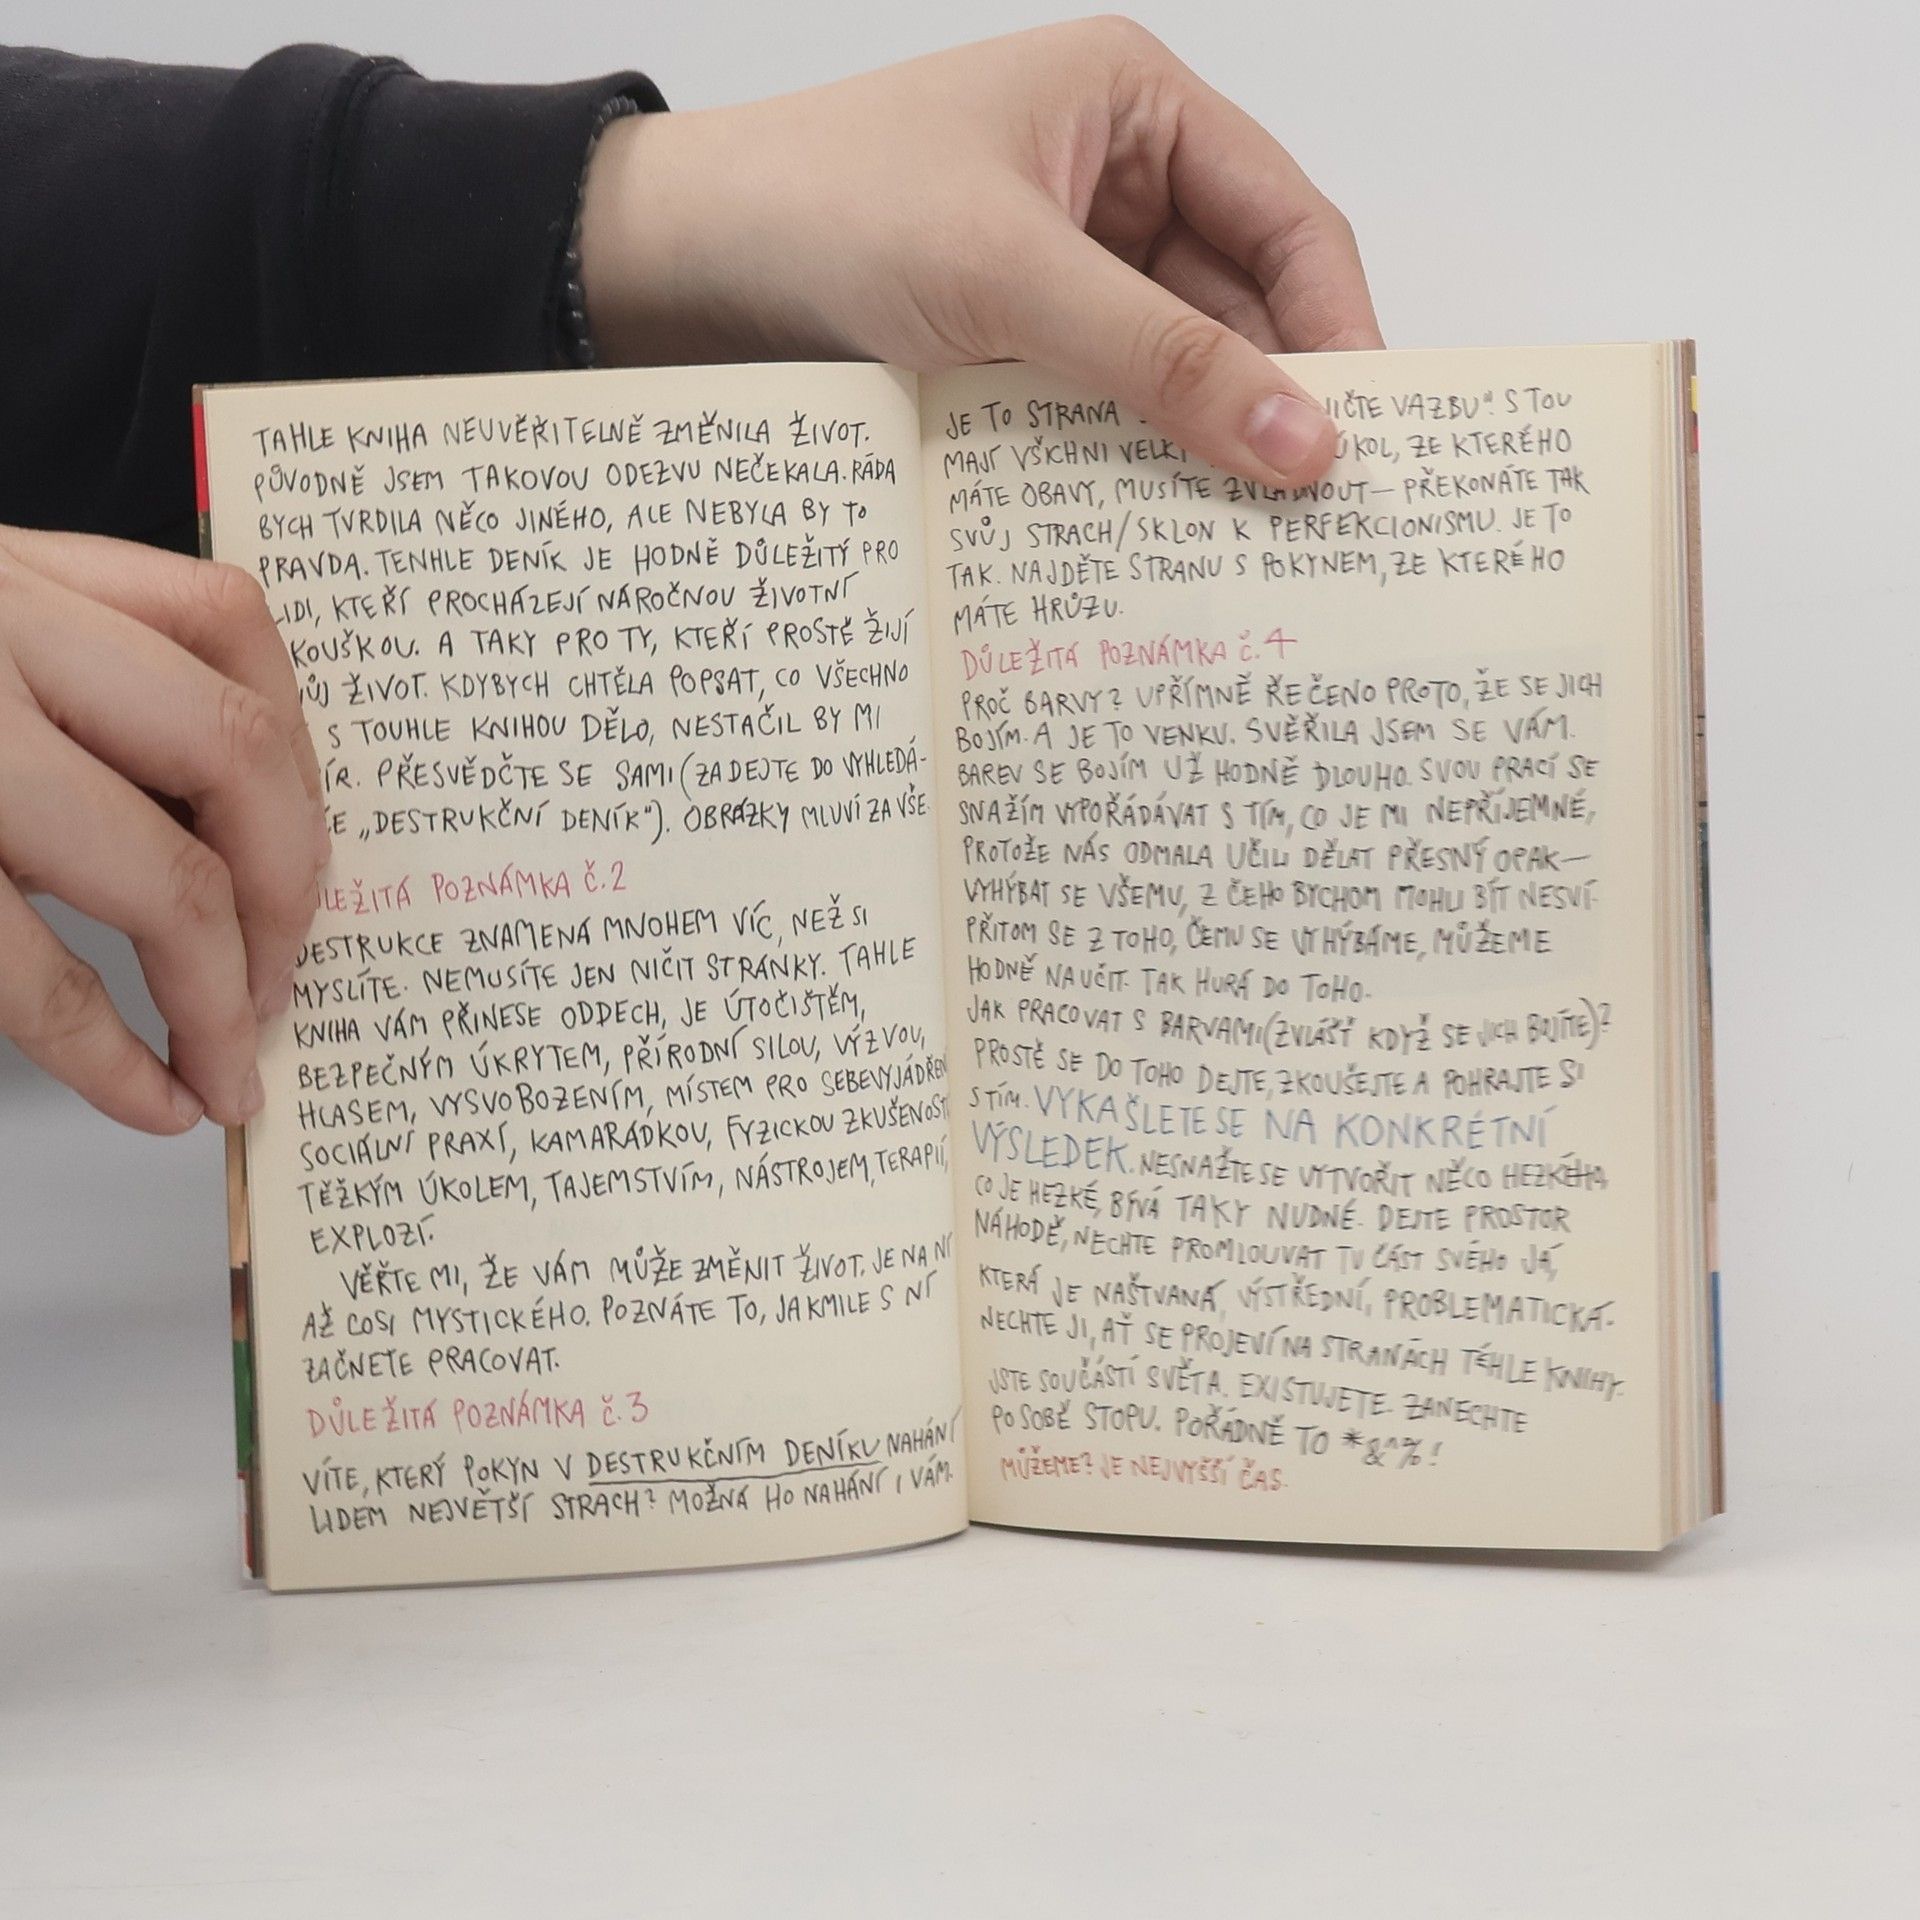 TAHLE KNIHA NEUVĚŘITELNĚ ZMĚNILA ŽIVOT.
PŮVODNĚ JSEM TAKOVOU ODEZVU NEČEKALA. RÁDA
BYCH TVRDILA NĚCO JINÉHO, ALE NEBYLA BY TO
PRAVDA. TENHLE DENÍK JE HODNĚ DŮLEŽITÝ PRO
LIDI, KTEŘÍ PROCHÁZEJÍ NÁROČNOU ŽIVOTNÍ
KOUŠKOU. A TAKY PRO TY, KTEŘÍ PROSTĚ ŽIJÍ
ŮJ ŽIVOT. KDYBYCH CHTĚLA POPSAT, CO VŠECHNO
S TOUHLE KNIHOU DĚLO, NESTAČIL BY MI
ÍR. PŘESVĚDČTE SE SAMI (ZADEJTE DO VYHLEDÁ-
ČE „DESTRUKČNÍ DENÍK"). OBRÁZKY MLUVÍ ZA VŠE.
ŮLEŽITÁ POZNÁMKA Č. 2
DESTRUKCE ZNAMENÁ MNOHEM VÍC, NEŽ SI
MYSLÍTE. NEMUSÍTE JEN NIČIT STRÁNKY. TAHLE
KNIHA VÁM PŘINESE ODDECH, JE ÚTOČIŠTĚM,
BEZPEČNÝM ÚKRYTEM, PŘÍRODNÍ SILOU, VÝZVOU,
HLASEM, VYSVOBOZENÍM, MÍSTEM PRO SEBEVYJÁDŘEN
SOCIÁLNÍ PRAXÍ, KAMARÁDKOU, FYZICKOU ZKUŠENOST
TĚŽKÝM ÚKOLEM, TAJEMSTVÍM, NÁSTROJEM, TERAPIÍ,
EXPLOZÍ.
VĚŘTE MI, ŽE VÁM MŮŽE ZMĚNIT ŽIVOT. JE NA NÍ
AŽ COSI MYSTICKÉHO. POZNÁTE TO, JAKMILE S NÍ
ZAČNETE PRACOVAT.
DŮLEŽITÁ POZNÁMKA Č. 3
VÍTE, KTERÝ POKYN V DESTRUKČNÍM DENÍKU NAHÁNÍ
LIDEM NEJVĚTŠÍ STRACH? MOŽNÁ HO NAHÁNÍ I VÁM.
JE TO STRANA IČTE VAZBU". S TOU
MAJÍ VŠICHNI VELK ÚKOL, ZE KTERÉHO
MÁTE OBAVY, MUSÍTE ZVLÁDNOUT — PŘEKONÁTE TAK
SVŮJ STRACH/SKLON K PERFEKCIONISMU. JE TO
TAK. NAJDĚTE STRANU S POKYNEM, ZE KTERÉHO
MÁTE HRŮZU.
DŮLEŽITÁ POZNÁMKA Č. 4
PROČ BARVY? UPŘÍMNĚ ŘEČENO PROTO, ŽE SE JICH
BOJÍM. A JE TO VENKU. SVĚŘILA JSEM SE VÁM.
BAREV SE BOJÍM UŽ HODNĚ DLOUHO. SVOU PRACÍ SE
SNAŽÍM VYPOŘÁDÁVAT S TÍM, CO JE MI NEPŘÍJEMNÉ,
PROTOŽE NÁS ODMALA UČILI DĚLAT PŘESNÝ OPAK —
VYHÝBAT SE VŠEMU, Z ČEHO BYCHOM MOHLI BÝT NESVÍ.
PŘITOM SE Z TOHO, ČEMU SE VYHÝBÁME, MŮŽEME
HODNĚ NAUČIT. TAK HURÁ DO TOHO.
JAK PRACOVAT S BARVAMI (ZVLÁŠŤ KDYŽ SE JICH BOJÍTE)?
PROSTĚ SE DO TOHO DEJTE, ZKOUŠEJTE A POHRAJTE SI
S TÍM. VYKAŠLETE SE NA KONKRÉTNÍ
VÝSLEDEK. NESNAŽTE SE VYTVOŘIT NĚCO HEZKÉHO,
CO JE HEZKÉ, BÝVÁ TAKY NUDNÉ. DEJTE PROSTOR
NÁHODĚ, NECHTE PROMLOUVAT TU ČÁST SVÉHO JÁ,
KTERÁ JE NAŠTVANÁ, VÝSTŘEDNÍ, PROBLEMATICKÁ.
NECHTE JI, AŤ SE PROJEVÍ NA STRANÁCH TÉHLE KNIHY.
JSTE SOUČÁSTÍ SVĚTA. EXISTUJETE. ZANECHTE
PO SOBĚ STOPU. POŘÁDNĚ TO *&^%!
MŮŽEME? JE NEJVYŠŠÍ ČAS.